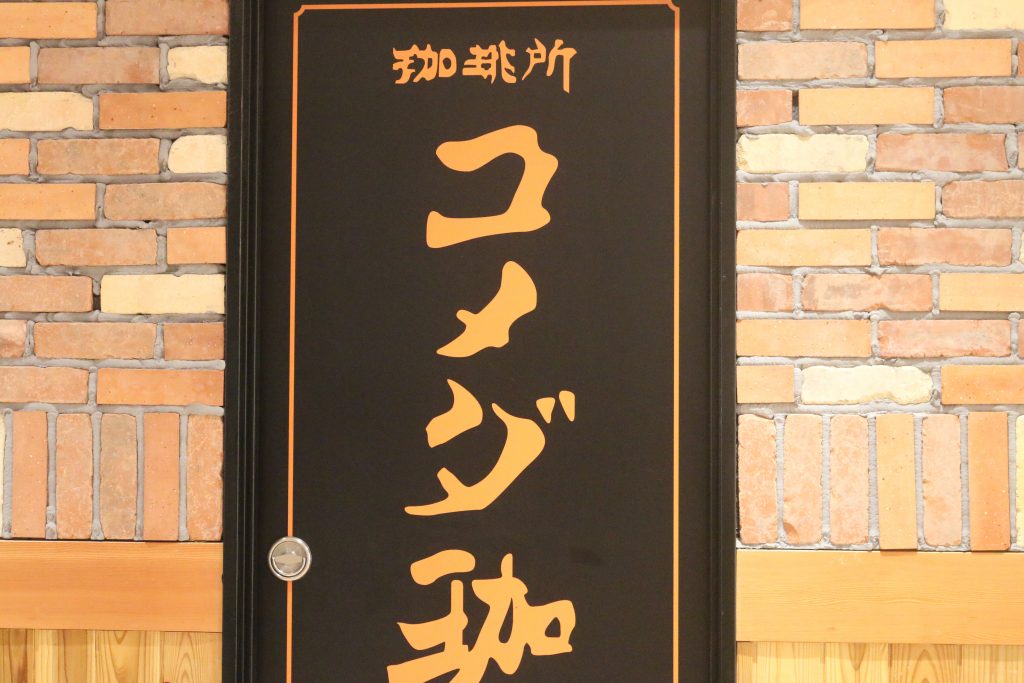 珈琲所
コメダ珈